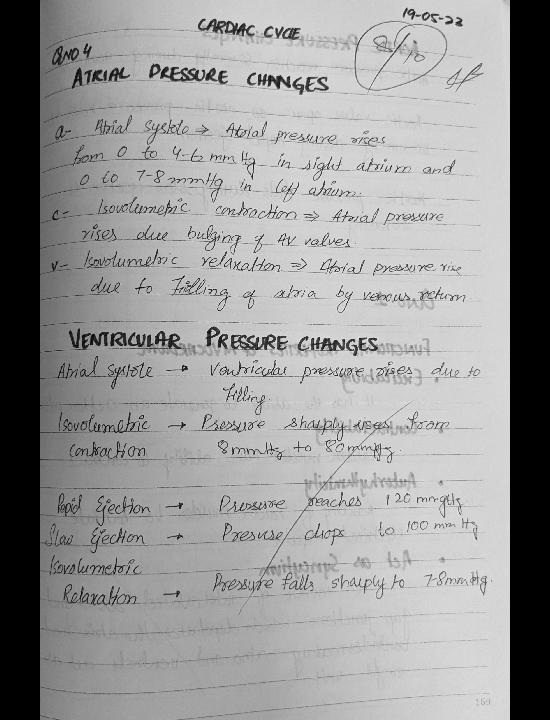 19-05-22
CARDIAC CYCLE
QNO 4
8½/10
ATRIAL PRESSURE CHANGES
a- Atrial systole ⇒ Atrial pressure rises
from 0 to 4-6 mm Hg in right atrium and
0 to 7-8 mmHg in left atrium.
c- Isovolumetric contraction ⇒ Atrial pressure
rises due bulging of AV valves.
v- Isovolumetric relaxation ⇒ Atrial pressure rise
due to Filling of atria by venous return
VENTRICULAR PRESSURE CHANGES
Atrial systole → Ventricular pressure rises due to
Filling.
Isovolumetric → Pressure sharply rises from
contraction 8mmHg to 80mmHg.
Rapid Ejection → Pressure reaches 120 mmHg
Slow Ejection → Pressure drops to 100 mm Hg
Isovolumetric
Relaxation → Pressure falls sharply to 7-8mmHg.
169